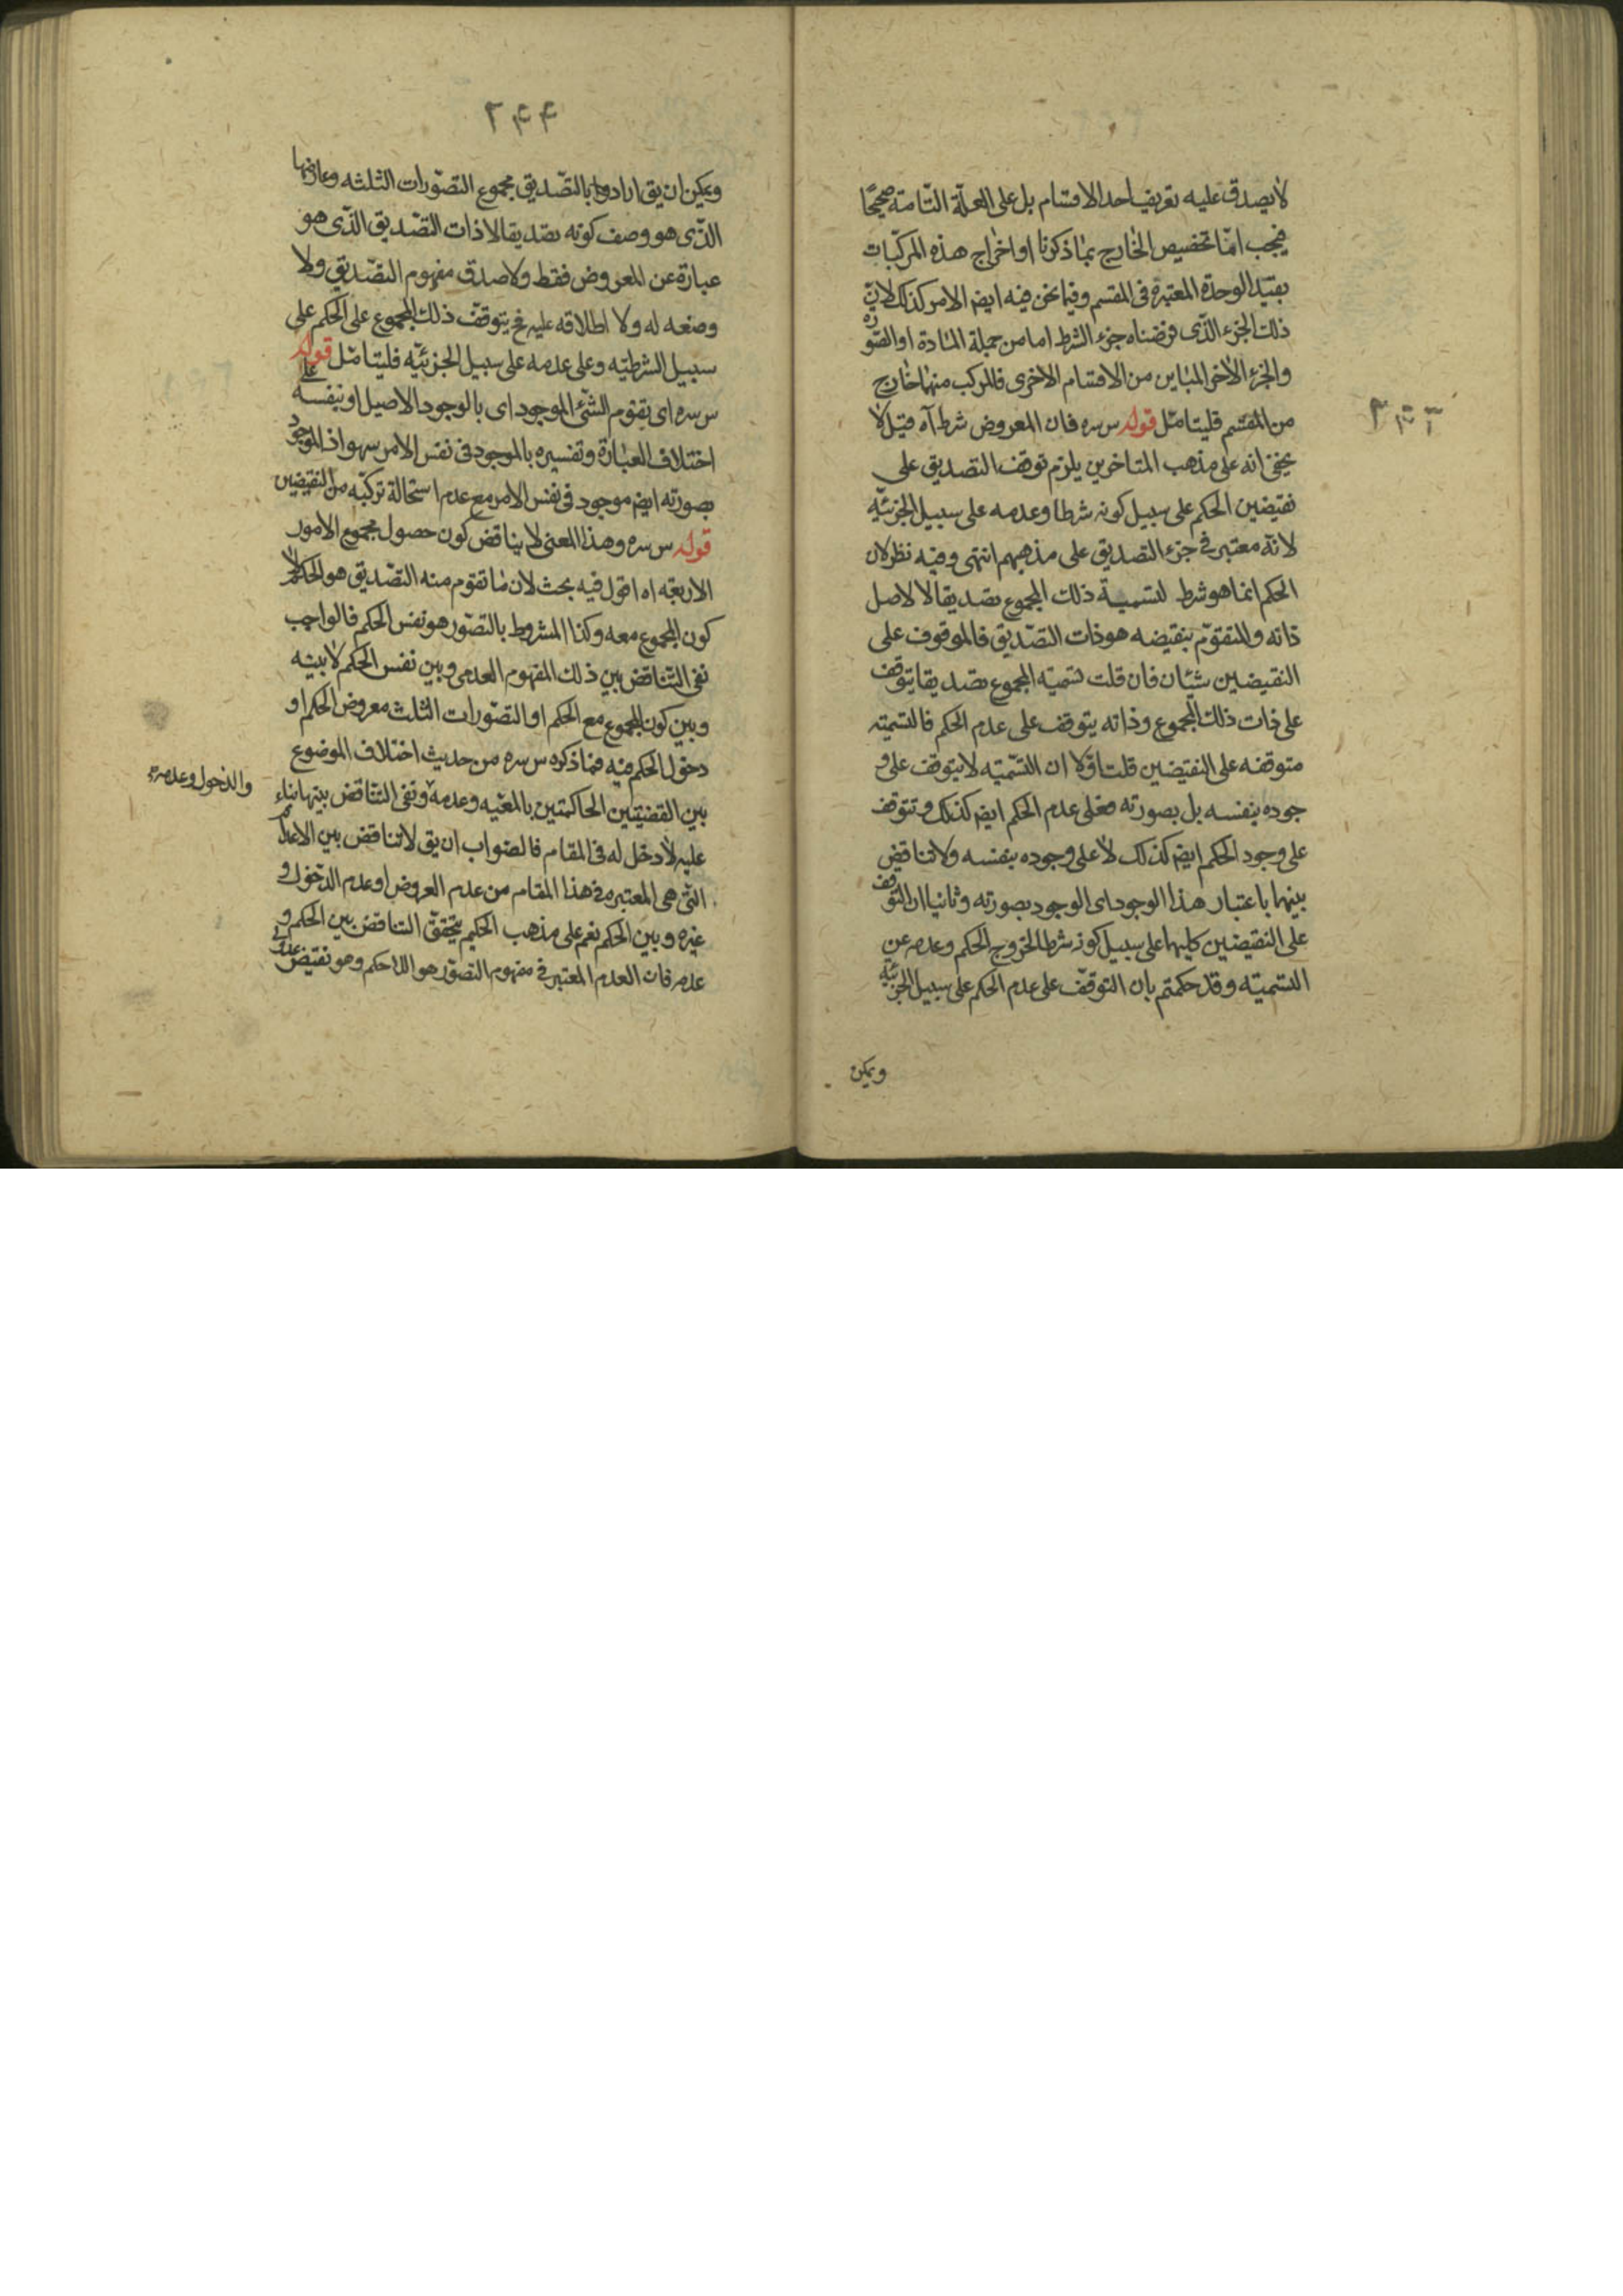 لا يصدق عليه تعريف احد الاقسام بل على العلّة التّامّة صحيحًا
فيجب امّا تخصيص الخارج بما ذكرنا او اخراج هذه المركّبات
بقيد الوحدة المعتبرة فى المقسم وفيما نحن فيه ايضا الامر كذلك لانّ
ذلك الجزء الّذى فرضناه جزء الشرط اما من جملة المادة او الصّورة
والجزء الاخر المباين من الاقسام الاخرى فالمركب منهما خارج
من المقسم فليتامّل قوله س سره فان المعروض شرط آه قيل لا
يخفى انه على مذهب المتاخرين يلزم توقف التصديق على
نقيضين الحكم على سبيل كونه شرطا وعدمه على سبيل الجزئيّه
لانّه معتبر فى جزء التصديق على مذهبهم انتهى وفيه نظر لان
الحكم انما هو شرط لتسمية ذلك المجموع تصديقا لا لاصل
ذاته والمتقوّم بنقيضه هو ذات التصّديق فالموقوف على
النقيضين شيئان فان قلت تسميّه المجموع تصديقا يتوقف
على ذات ذلك المجموع وذاته يتوقف على عدم الحكم فالتسميّه
متوقفه على النقيضين قلت اوّلا ان التسّميّه لا يتوقف على و
جوده بنفسه بل بصورته فعلى عدم الحكم ايض كذلك وتتوقف
على وجود الحكم ايض كذلك لا على وجوده بنفسه ولا تناقض
بينهما باعتبار هذا الوجود اى الوجود بصورته وثانيا ان التوقف
على النقيضين كليهما على سبيل كونه شرطا لخروج الحكم وعدمه عن
التسميّه وقد حكمتم بان التوقّف على عدم الحكم على سبيل الجزئيّه
ويمكن
٢۴۴
ويمكن ان يق ارادوا بالتصّديق مجموع التصّورات الثلثه وعارضها
الذّى هو وصف كونه تصديقا لا ذات التصّديق الذّى هو
عبارة عن المعروض فقط ولا صدق مفهوم التصّديق ولا
وضعه له ولا اطلاقه عليه فح يتوقف ذلك المجموع على الحكم على
سبيل الشرطيّه وعلى عدمه على سبيل الجزئيّه فليتامّل قوله
س سره اى يتقوم الشّئ الموجود اى بالوجود الاصيل او بنفسه على
اختلاف العبارة وتفسيره بالموجود فى نفس الامر سهو اذ الموجود
بصورته ايض موجود فى نفس الامر مع عدم استحالة تركبّه من النقيضين
قوله س سره وهذا المعنى لا يناقض كون حصول مجموع الامور
الاربعّه اه اقول فيه بحث لان ما تقوم منه التصّديق هو الحكم لا
كون المجموع معه وكذا المشروط بالتصّور هو نفس الحكم فالواجب
نفى التّناقض بين ذلك المفهوم العدمى وبين نفس الحكم لا بينه
وبين كون المجموع مع الحكم او التصّورات الثلث معروض الحكم او
دخول الحكم فيه فما ذكره س سره من حديث اختلاف الموضوع
بين القضيّتين الحاكمتين بالمعيّه وعدمه ونفى التّناقض بينهما بناء
والدخول وعدمه
عليه لا دخل له فى المقام فالصّواب ان يق لا تناقض بين الاعدام
التّى هى المعتبره فى هذا المقام من عدم العروض او عدم الدّخول و
غيره وبين الحكم نعم على مذهب الحكيم يتحقّق التناقض بين الحكم و
عدمه فان العدم المعتبر فى مفهوم التصوّر هو اللا حكم وهو نقيض